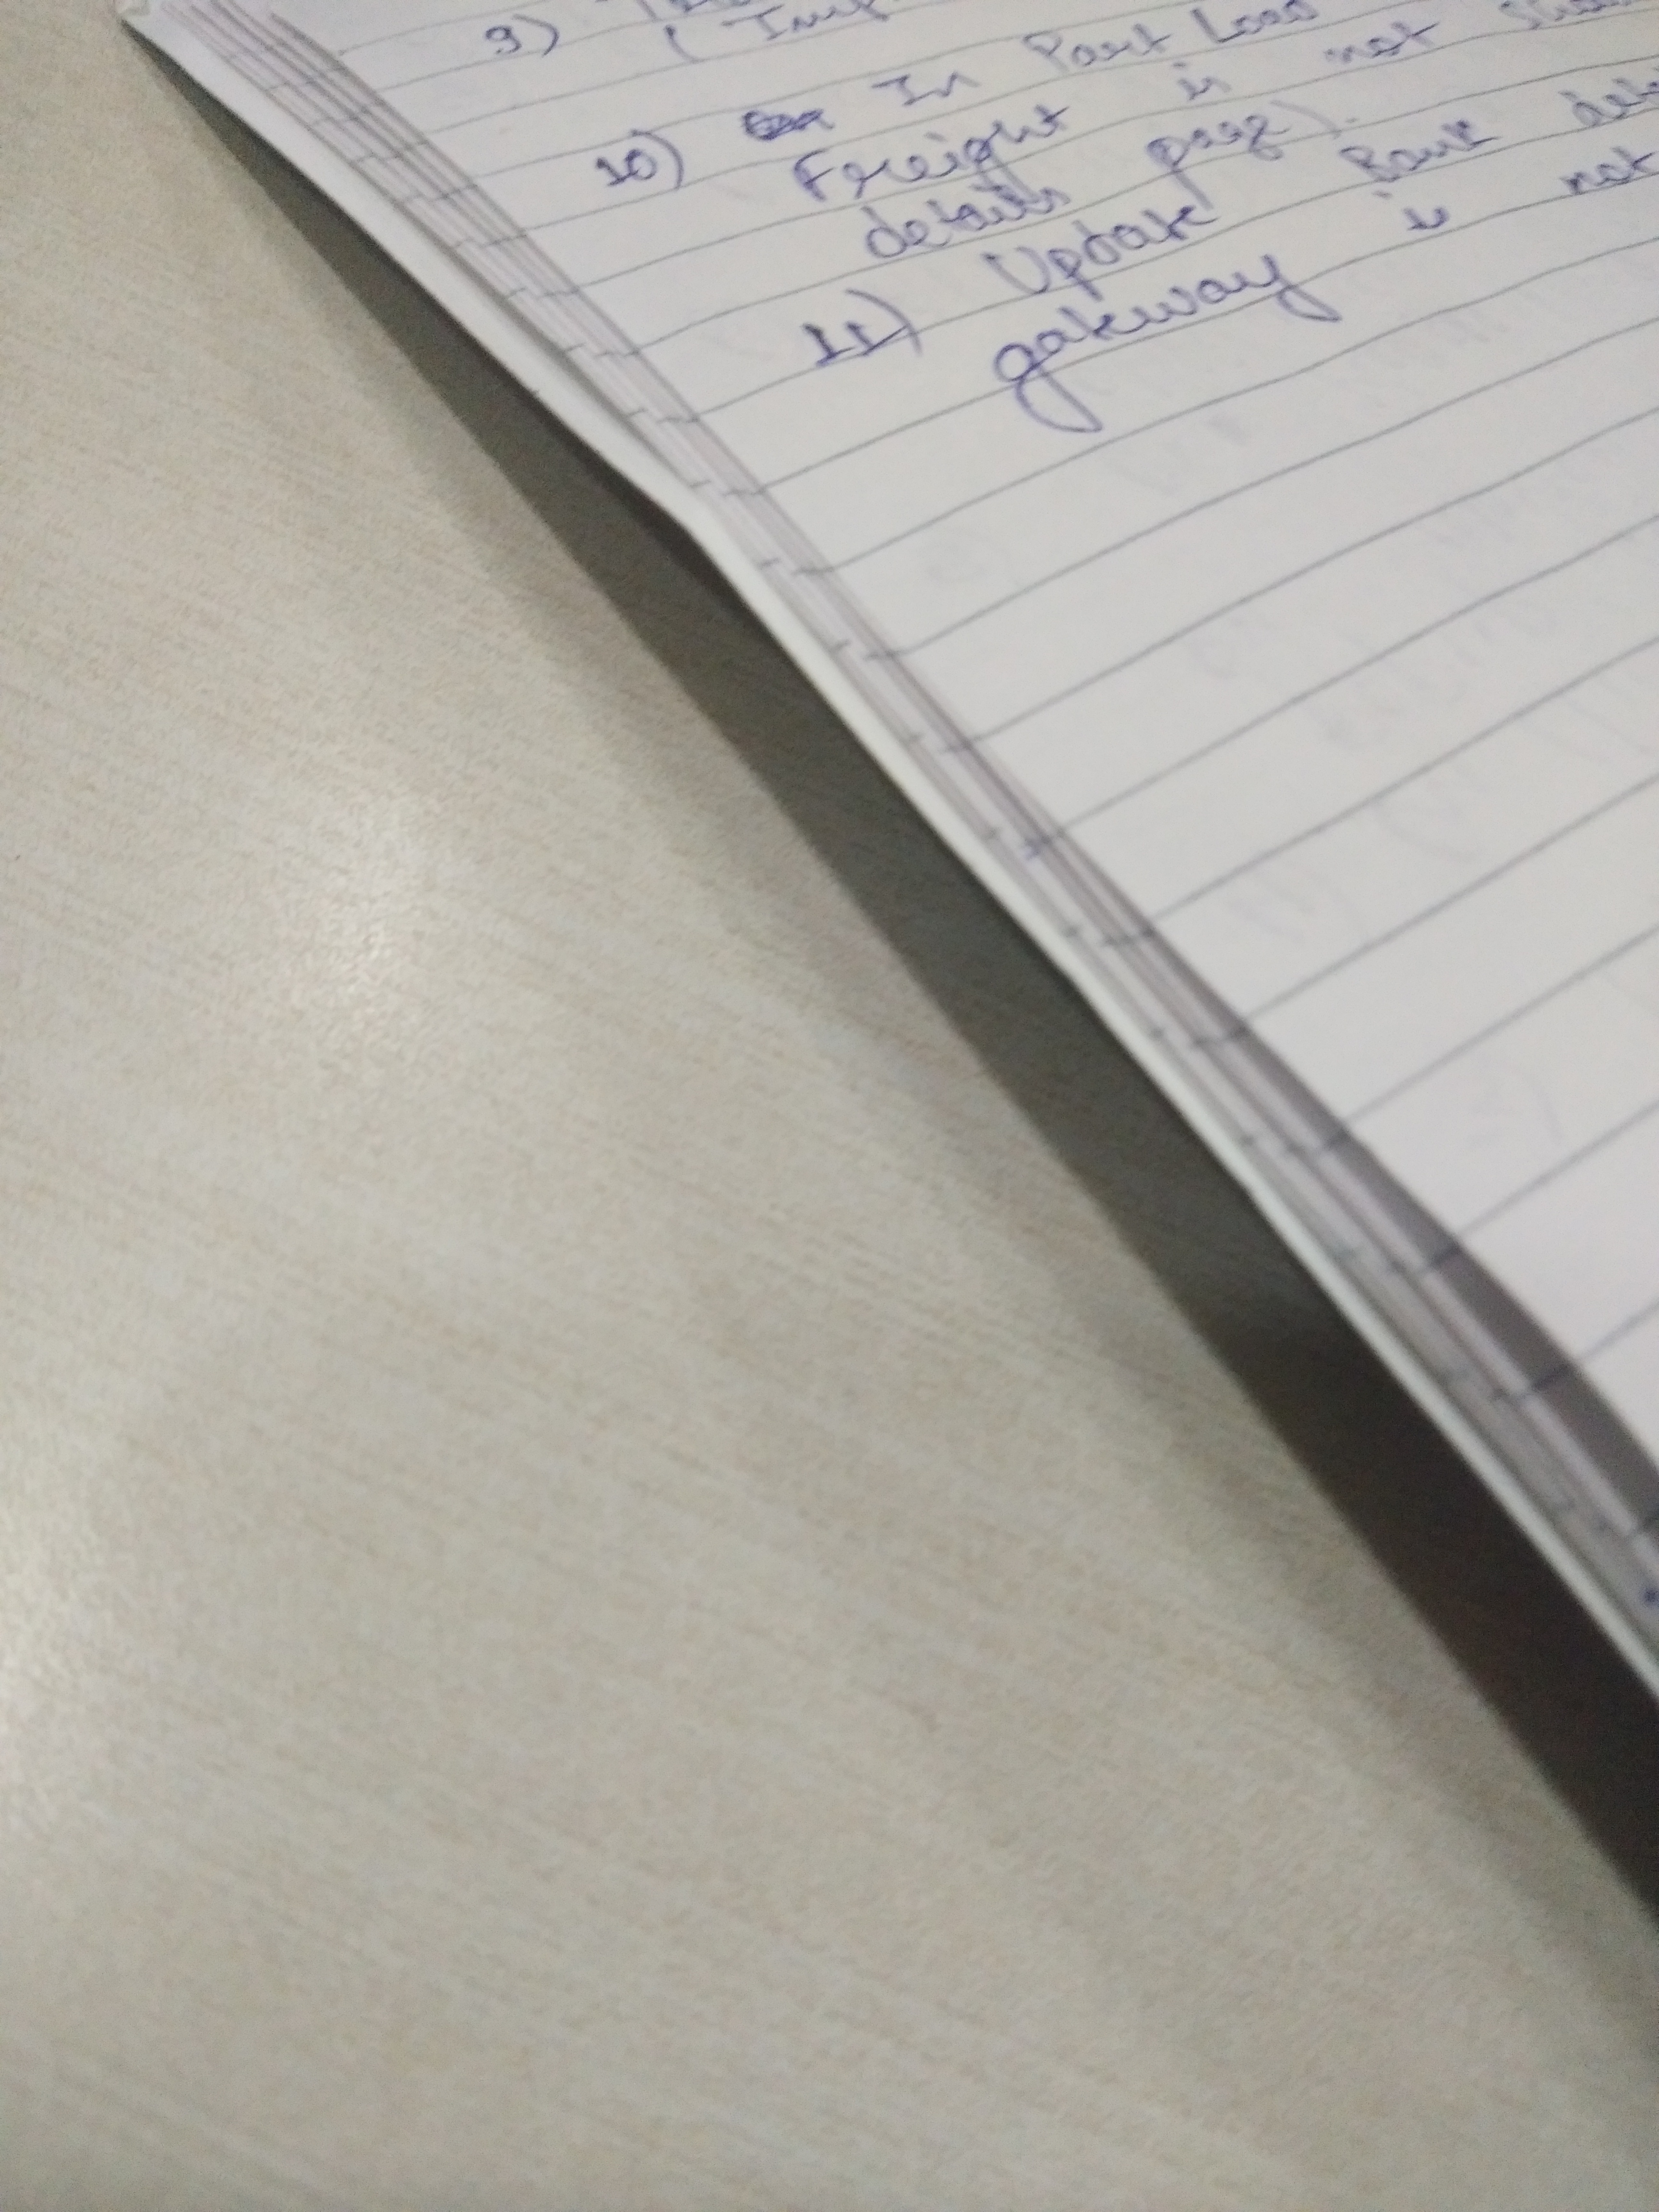 9)
( Imp
10) In Part Load
Freight is not
details page).
11) Update Bank
gateway is not